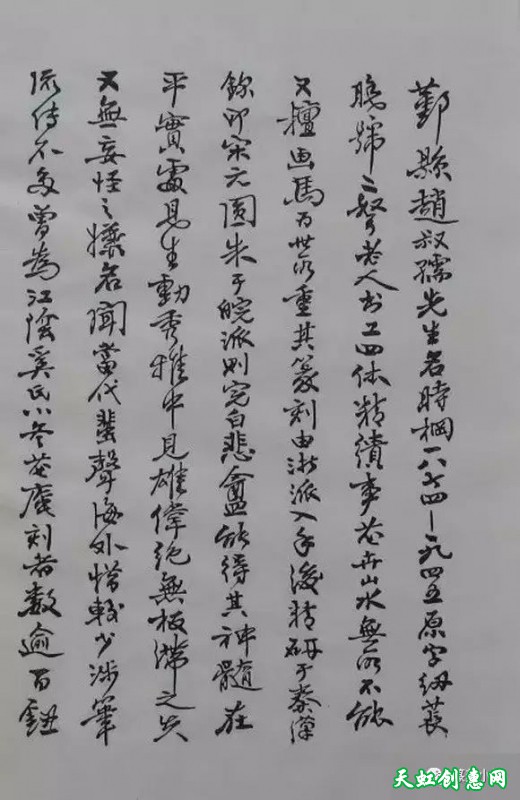 鄞縣趙叔孺先生名時棡一八七四—一九四五原字紉萇
晚號二弩老人書工四体精繢事花卉山水無所不能
又擅画馬為世所重其篆刻由浙派入手後精研于秦漢
鉨印宋元圆朱于皖派则完白悲盦能得其神髓在
平實處見生動秀雅中見雄偉絶無板滞之失
又無妄怪之嬚名聞當代蜚聲海外惜較少涉筆
流传不多曾為江陰奚氏小冬花庵刻者数逾百鈕
天虹创意网